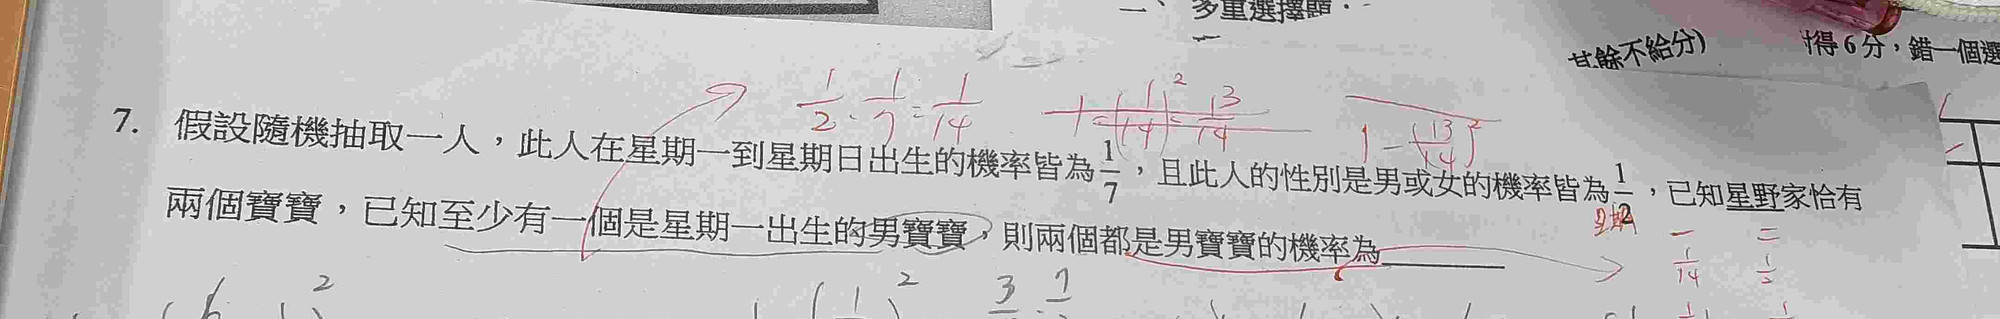 一、多重選擇題
其餘不給分)
得6分，錯一個選
1/2 · 1/7 = 1/14
1-(1/14)² = 13/14
1-(13/14)²
7. 假設隨機抽取一人，此人在星期一到星期日出生的機率皆為1/7，且此人的性別是男或女的機率皆為1/2，已知星野家恰有
兩個寶寶，已知至少有一個是星期一出生的男寶寶，則兩個都是男寶寶的機率為
一 二
1/14 1/2